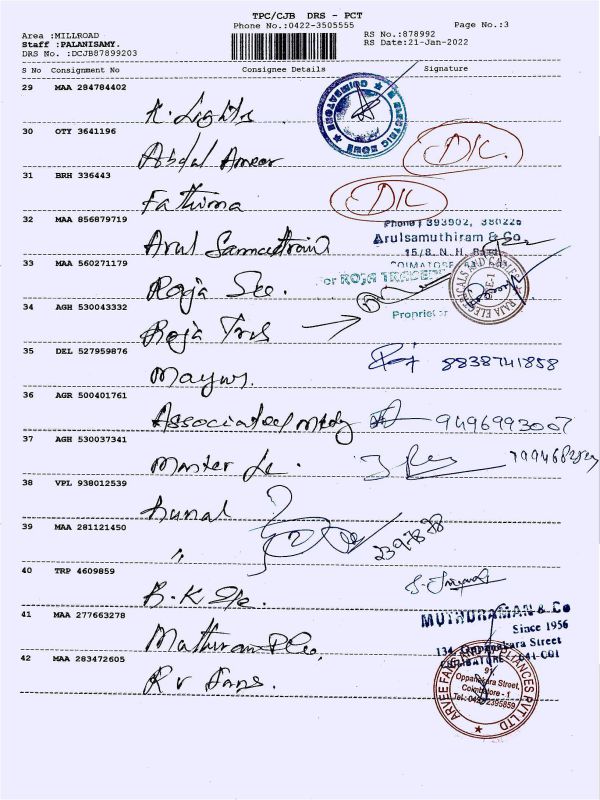 TPC/CJB DRS - PCT
Phone No.:0422-3505555
Page No.:3
Area :MILLROAD
RS No.:878992
Staff :PALANISAMY.
RS Date:21-Jan-2022
DRS No. :DCJB87899203
S No Consignment No Consignee Details Signature
29 MAA 284784402
K. Lights
ELECTRIC HOME
COIMBATORE
30 OTY 3641196
Abdul Ameer
31 BRH 336443
Fathima
32 MAA 856879719
Phone: 393902, 380226
Arulsamuthiram & Co
15/8, N. H.
Arul
33 MAA 560271179
COIMATOSE
For ROJA TRADERS
Roja
RAJA ELECTRICALS AND
34 AGH 530043332
Proprietor
Roja Trs
35 DEL 527959876
8838741858
36 AGR 500401761
Associated
9496993007
37 AGH 530037341
Master
38 VPL 938012539
39 MAA 281121450
"
40 TRP 4609859
B.K
41 MAA 277663278
MUTHURAMAN & Co
Since 1956
134, Oppanakara Street
COIMBATORE - 641 001
42 MAA 283472605
R V Fans.
ARVEE FANS AND APPLIANCES PVT LTD
91,
Oppanakara Street,
Coimbatore - 1
Tel: 0422 2395859